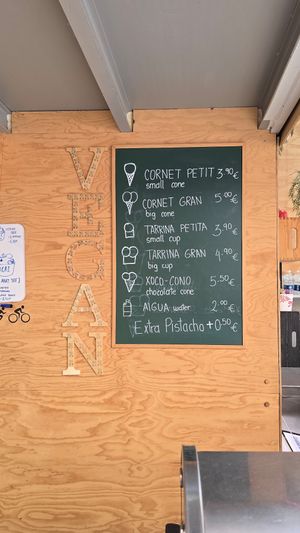 VEGAN
CORNET PETIT 3.90€
small cone
CORNET GRAN 5.00€
big cone
TARRINA PETITA 3,90€
small cup
TARRINA GRAN 4.90€
big cup
XOCO-CONO 5.50€
chocolate cone
AIGUA-water 2.00€
Extra Pistacho +0.50€